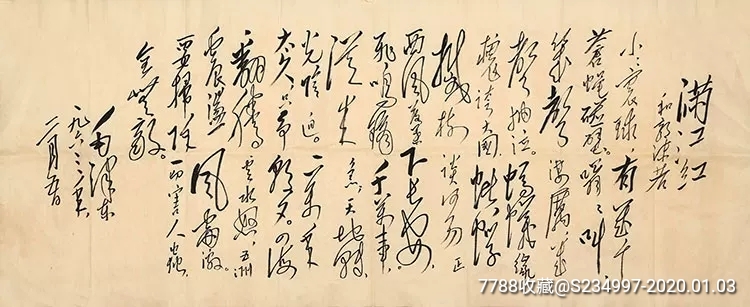 满江红
和郭沫若
小小寰球，有几个
苍蝇碰壁。嗡嗡叫，
几声凄厉，几
声抽泣。蚂蚁缘
槐夸大国，蚍蜉
撼树谈何易。正
西风落叶下长安，
飞鸣镝。千万事，
从来急。天地转，
光阴迫。一万年
太久，只争朝夕。四海
翻腾云水怒，五洲
震荡风雷激。
要扫除一切害人虫，
全无敌。
毛泽东
一九六三年
二月五日
7788收藏@S234997-2020.01.03